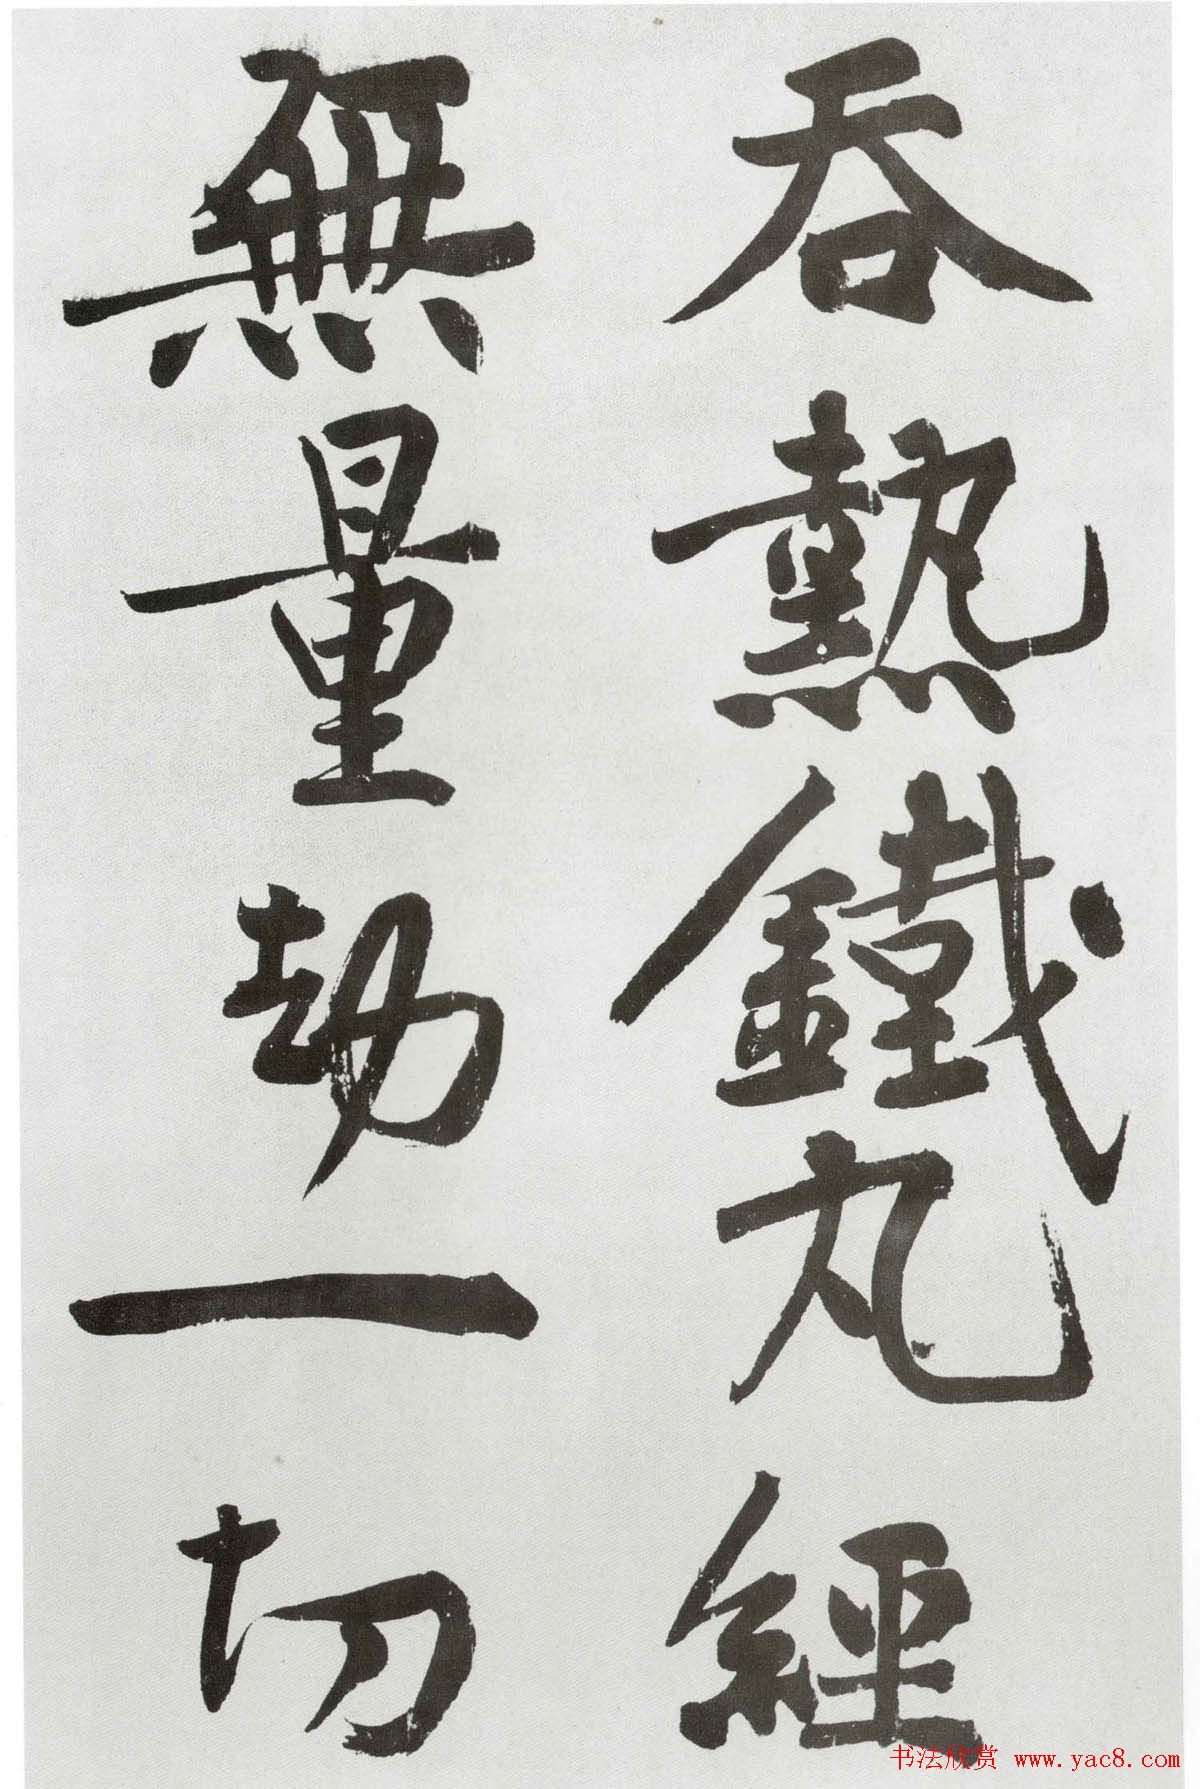 吞熱鐵丸經
無量劫一切
书法欣赏 www.yac8.com